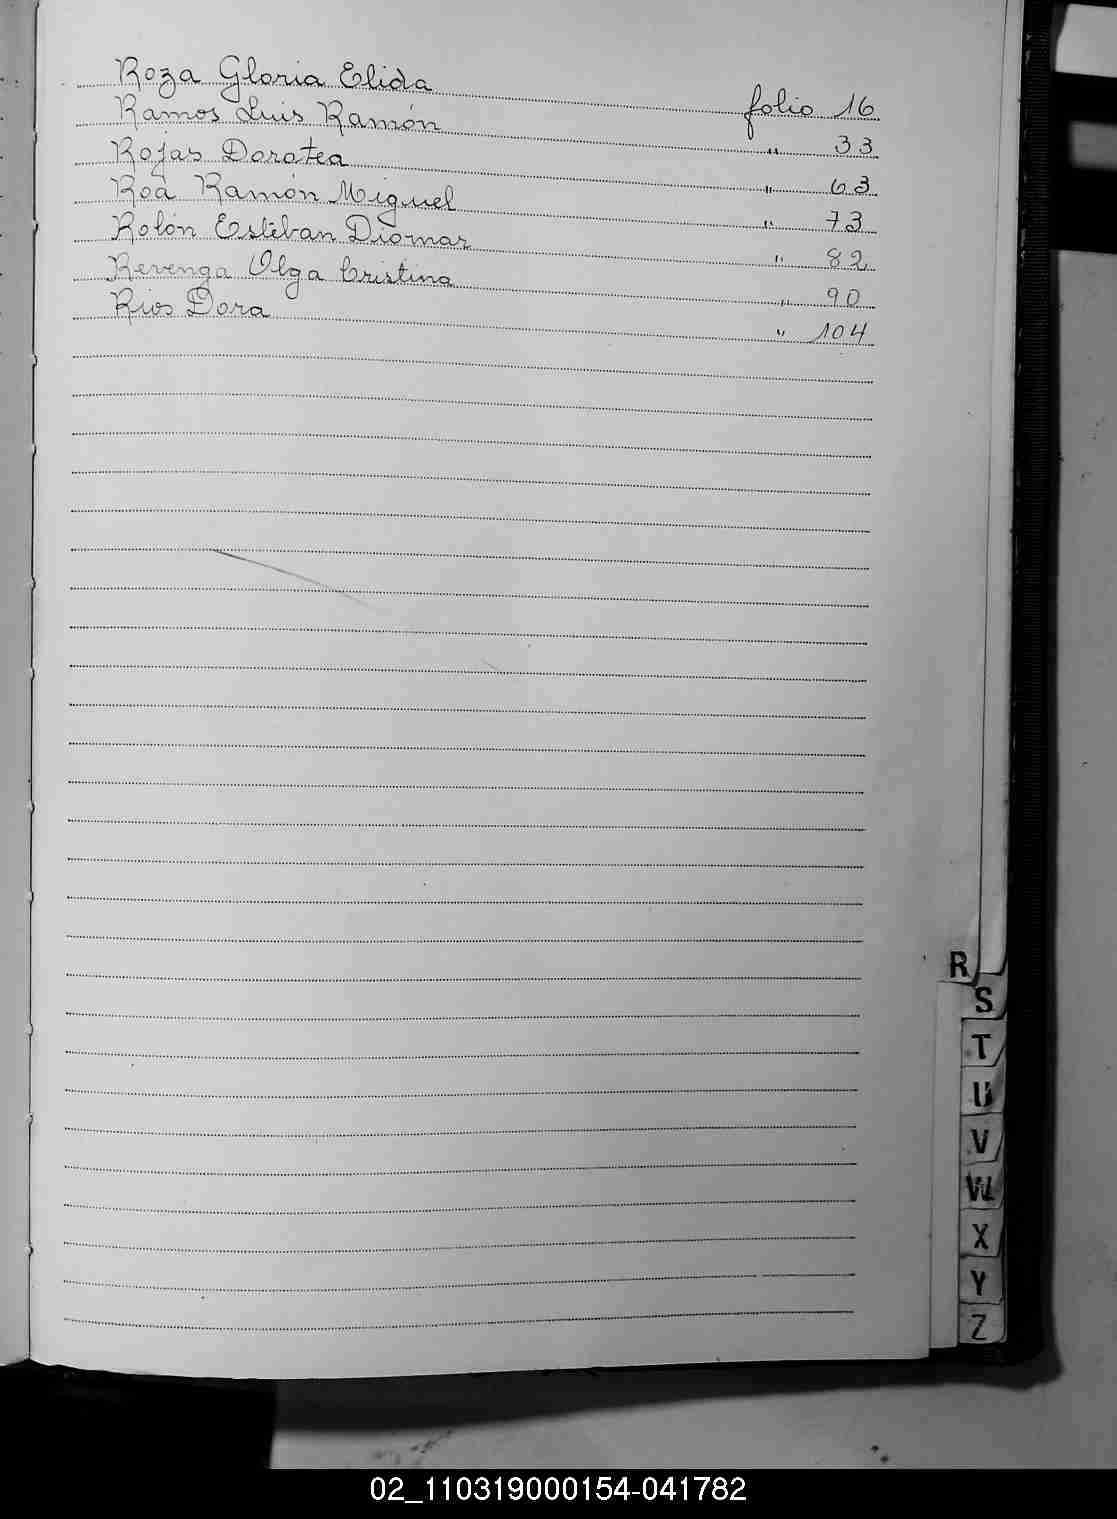 Roza Gloria Elida folio 16
Ramos Luis Ramón " 33
Rojas Dorotea " 63
Roa Ramón Miguel " 73
Rolón Esteban Diomar " 82
Revenga Olga Cristina " 90
Rios Dora " 104
R
S
T
U
V
W
X
Y
Z
02_110319000154-041782